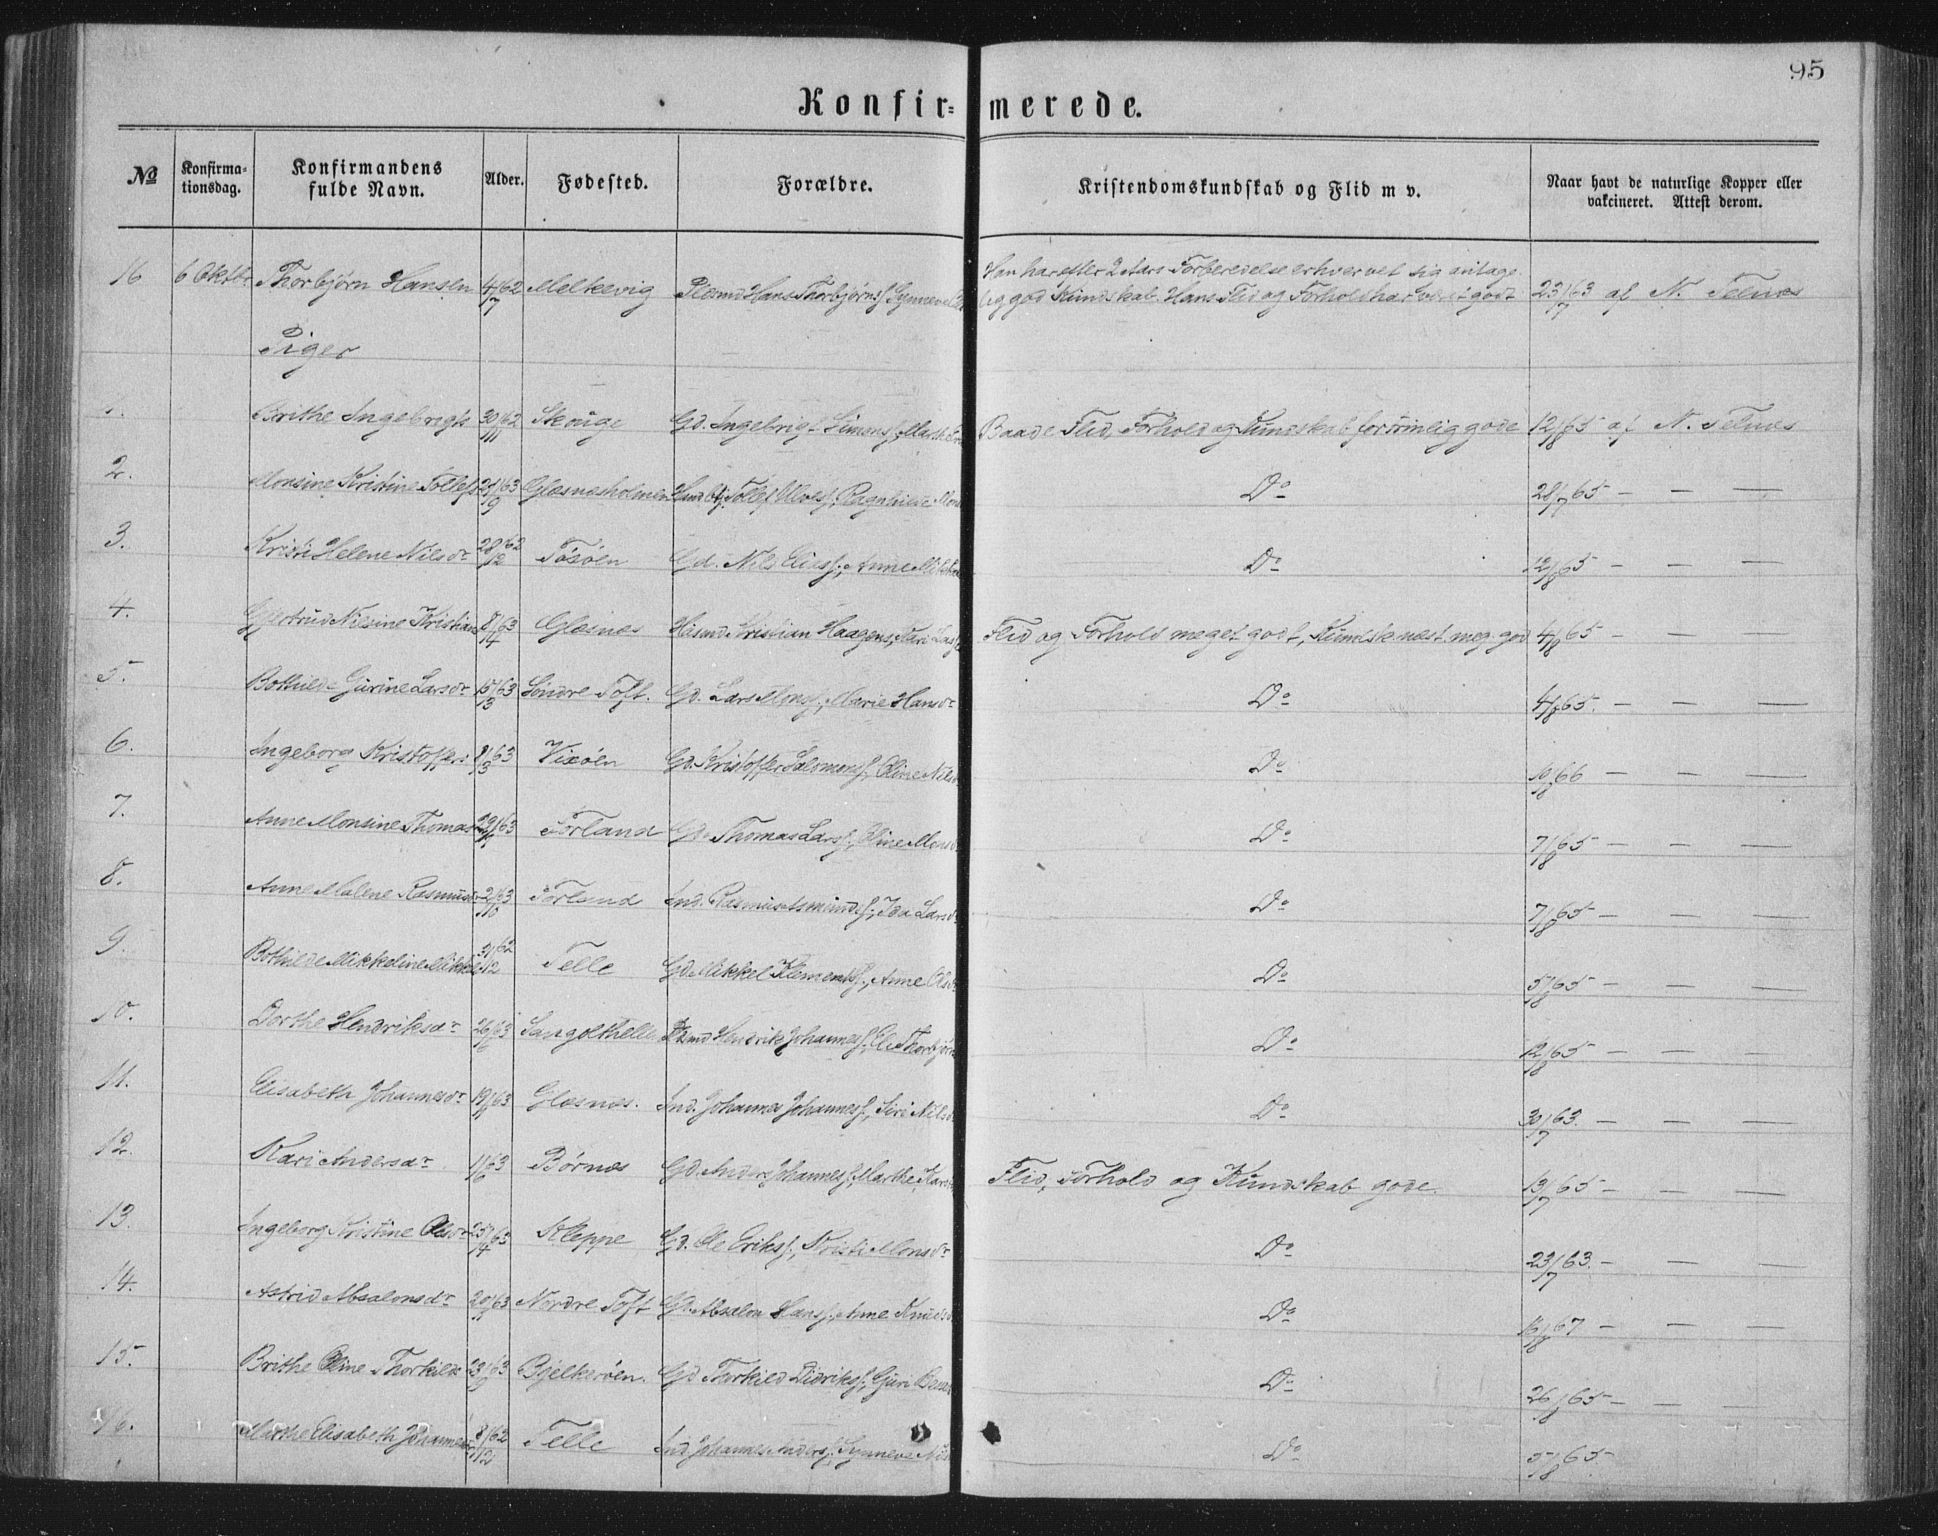 95
Konfir= merede.
№ Konfirma=tionsdag. Konfirmandens fulde Navn. Alder. Fødested. Forældre. Kristendomskundskab og Flid m v. Naar havt de naturlige Kopper eller vakcineret. Attest derom.
Han har efter 2 Aars Forberedelse erhvervet sig antage
16 6 Oktbr. Thorbjørn Hansen 4/7 62 Melkevig Hans Thorbjørns. lig god Kundskab. Hans Flid og Forhold har været godt 23/7 63 af N. Telnes
Piger
1. Brithe Ingebrigts 30/11 62 Skouge Gd. Ingebrigt Simons., Marthe Baade Flid, Forhold og Kundskab fortrinlig gode 12/8 65 af N. Telnes
2. Monsine Kristine Tollefs 21/9 63 Glesnesholmen Tollef Ulves., Ragnhilde Mons Do 28/7 65 — — —
3. Kristi Helene Nilsdr 28/12 62 Tösöen Gd. Nils Elias., Anne Do 12/8 65 — — —
4. Gjertrud Nilsine Kristian 8/4 63 Glesnes Husmd Kristian Haagens., Kari Lars Flid og Forhold meget godt, Kundsk næst. meg. god 4/8 65 — —
5. Bothilde Gurine Larsdr 15/3 63 Söndre Toft. Gd. Lars Mons., Marie Hansdr Do 4/8 65. — — —
6. Ingeborg Kristoffers 8/3 63 Vixöen Gd. Kristoffer Salomons., Oline Nilsd Do 10/8 66 — — —
7. Anne Monsine Thomas 63 Förland Gd. Thomas Lars., Oline Monsd Do 7/8 65 — — —
8. Anne Malene Rasmusdr 2/10 63 Förland Ind. Rasmus Asmunds., Ida Larsdr Do 7/8 65 — — —
9. Bothilde Mikkeline Mikkels 31/12 62 Telle Gd. Mikkel Klements., Anne Olsdr Do 5/8 65 — — —
10. Dorthe Hendriksdr 26/6 63 Hendrik Johannes., Eli Thorbjörn Do 12/8 65 — — —
11. Elisabeth Johannesdr 19/ 63 Glesnes. Ind. Johannes Johannes., Siri Nilsd Do 30/7 63. — — —
12. Kari Andersdr 1/6 63 Börnes Gd. Anders Johannes., Marthe Flid, Forhold og Kundskab gode. 13/7 65 — — —
13. Ingeborg Kristine Olsdr 25/4 63 Kleppe Gd. Ole Eriks., Kristi Monsdr Do 23/7 63. — — —
14. Astrid Absalonsdr 20/ 63 Nordre Toft Gd. Absalon Hans., Anne Knudsd Do 16/8 67 — — —
15. Brithe Oline Thorkilds 23/9 63 Bjelkeröen. Gd Thorkild Didriks., Guri Do 26/8 65 — — —
16. Marthe Elisabeth Johannes 8/12 62 Telle Ind Johannes Anders., Synneve Nils Do 5/8 65.